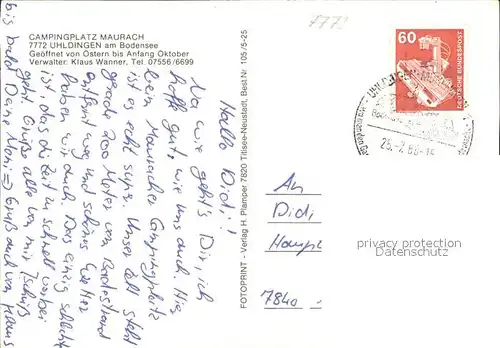 CAMPINGPLATZ MAURACH
7772 UHLDINGEN am Bodensee
Geöffnet von Ostern bis Anfang Oktober
Verwalter: Klaus Wanner, Tel. 07556/6699
Hallo Didi!
Na, wie geht's Dir, ich
hoff gut, wie uns auch. Hier
beim Mauracher Campingplatz
ist es echt super. Unser Zelt steht
grade 200 Meter vom Badestrand
entfernt weg und schönes Wetter
haben wir auch. Das einzig schlechte
ist, das die Zeit so schnell vorbei
geht. Grüße alle von mir Tschüß
bis bald Dein
Gruß auch von Klaus
FOTOPRINT - Verlag H. Plamper 7820 Titisee-Neustadt, Best.Nr 105/5-25
60
DEUTSCHE BUNDESPOST
UHLDINGEN
25.-7.86-15
An
Didi
7840
privacy protection
Datenschutz